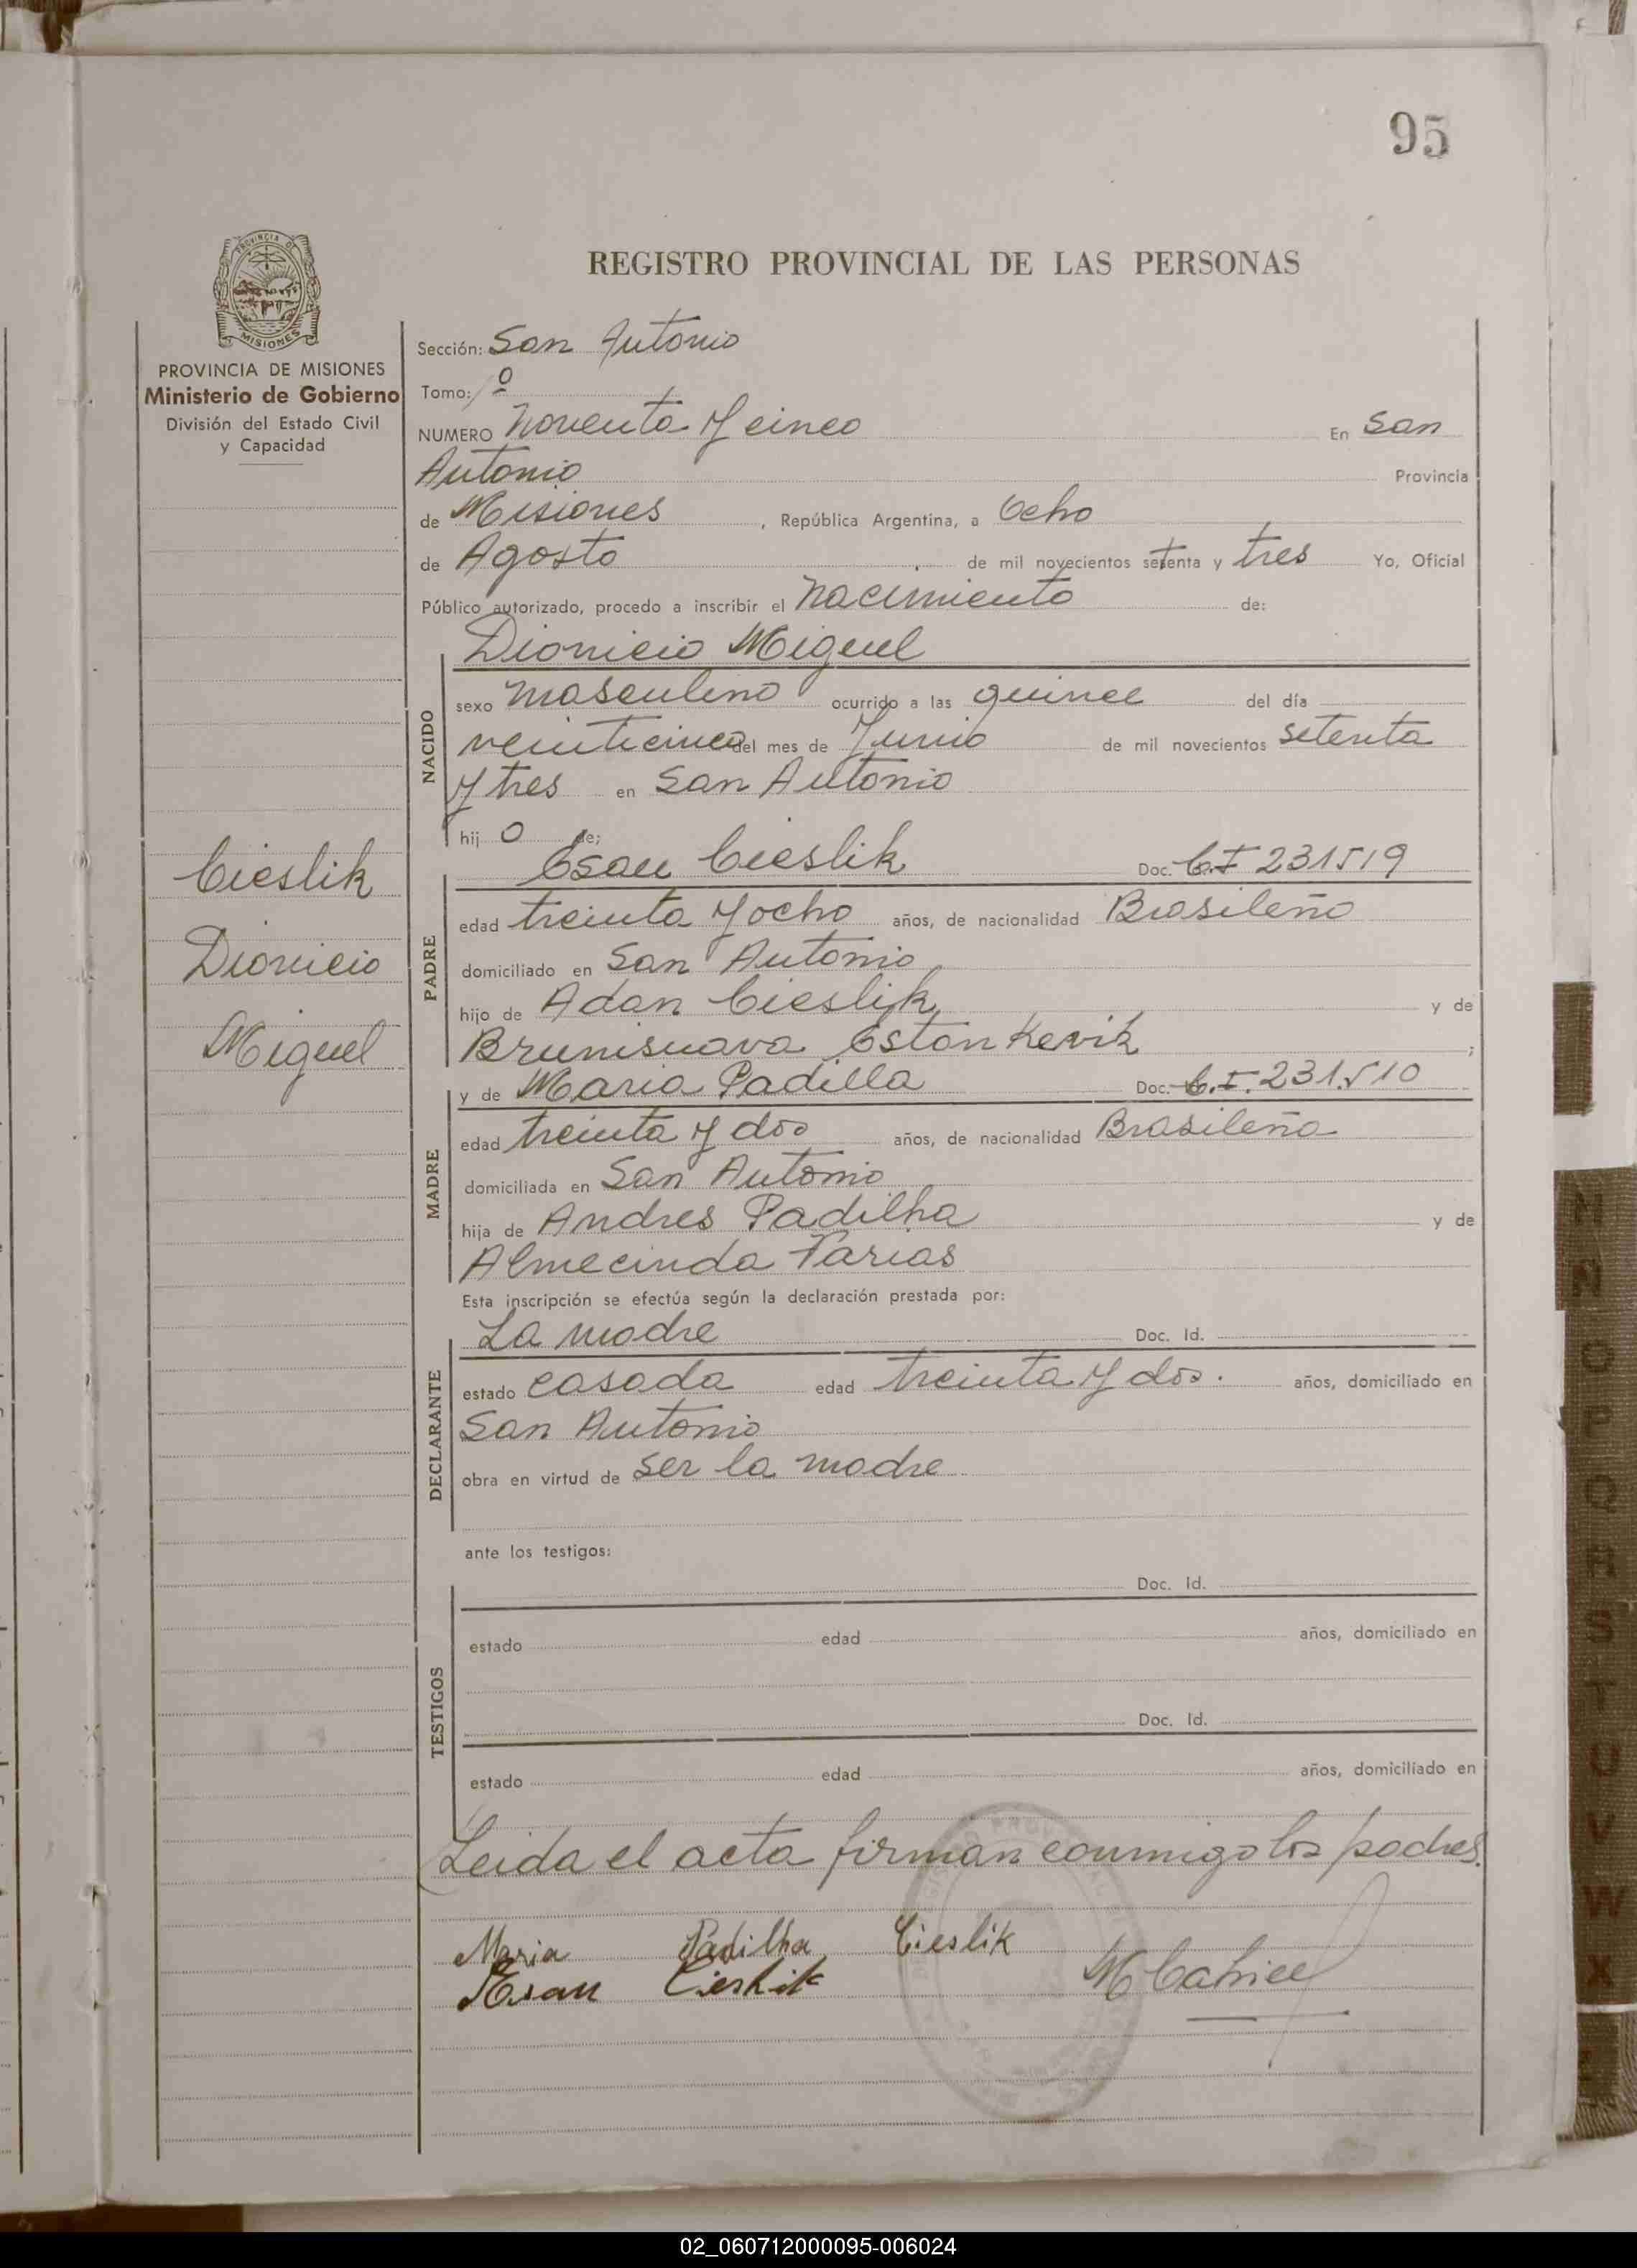 95
REGISTRO PROVINCIAL DE LAS PERSONAS
PROVINCIA DE MISIONES
Ministerio de Gobierno
División del Estado Civil
y Capacidad
Cieslik
Dionicio
Miguel
Sección: San Antonio
Tomo: 1º
NUMERO Noventa y cinco En San
Antonio Provincia
de Misiones, República Argentina, a Ocho
de Agosto de mil novecientos setenta y tres Yo, Oficial
Público autorizado, procedo a inscribir el Nacimiento de:
Dionicio Miguel
NACIDO
sexo masculino ocurrido a las quince del día
veinticinco del mes de Junio de mil novecientos setenta
y tres en San Antonio
hij o de;
Esau Cieslik Doc. C.I 231519
PADRE
edad treinta y ocho años, de nacionalidad Brasileño
domiciliado en San Antonio
hijo de Adan Cieslik y de
Brunisuava Estonkevik;
y de Maria Padilla Doc. C.I. 231.510
MADRE
edad treinta y dos años, de nacionalidad Brasileña
domiciliada en San Antonio
hija de Andres Padilha y de
Almecinda Farias
Esta inscripción se efectúa según la declaración prestada por:
La madre Doc. Id.
DECLARANTE
estado casada edad treinta y dos. años, domiciliado en
San Antonio
obra en virtud de ser la madre
ante los testigos:
Doc. Id.
TESTIGOS
estado edad años, domiciliado en
Doc. Id.
estado edad años, domiciliado en
Leida el acta firman conmigo los padres.
Maria Padilha Cieslik
Esau Cieslik
02_060712000095-006024